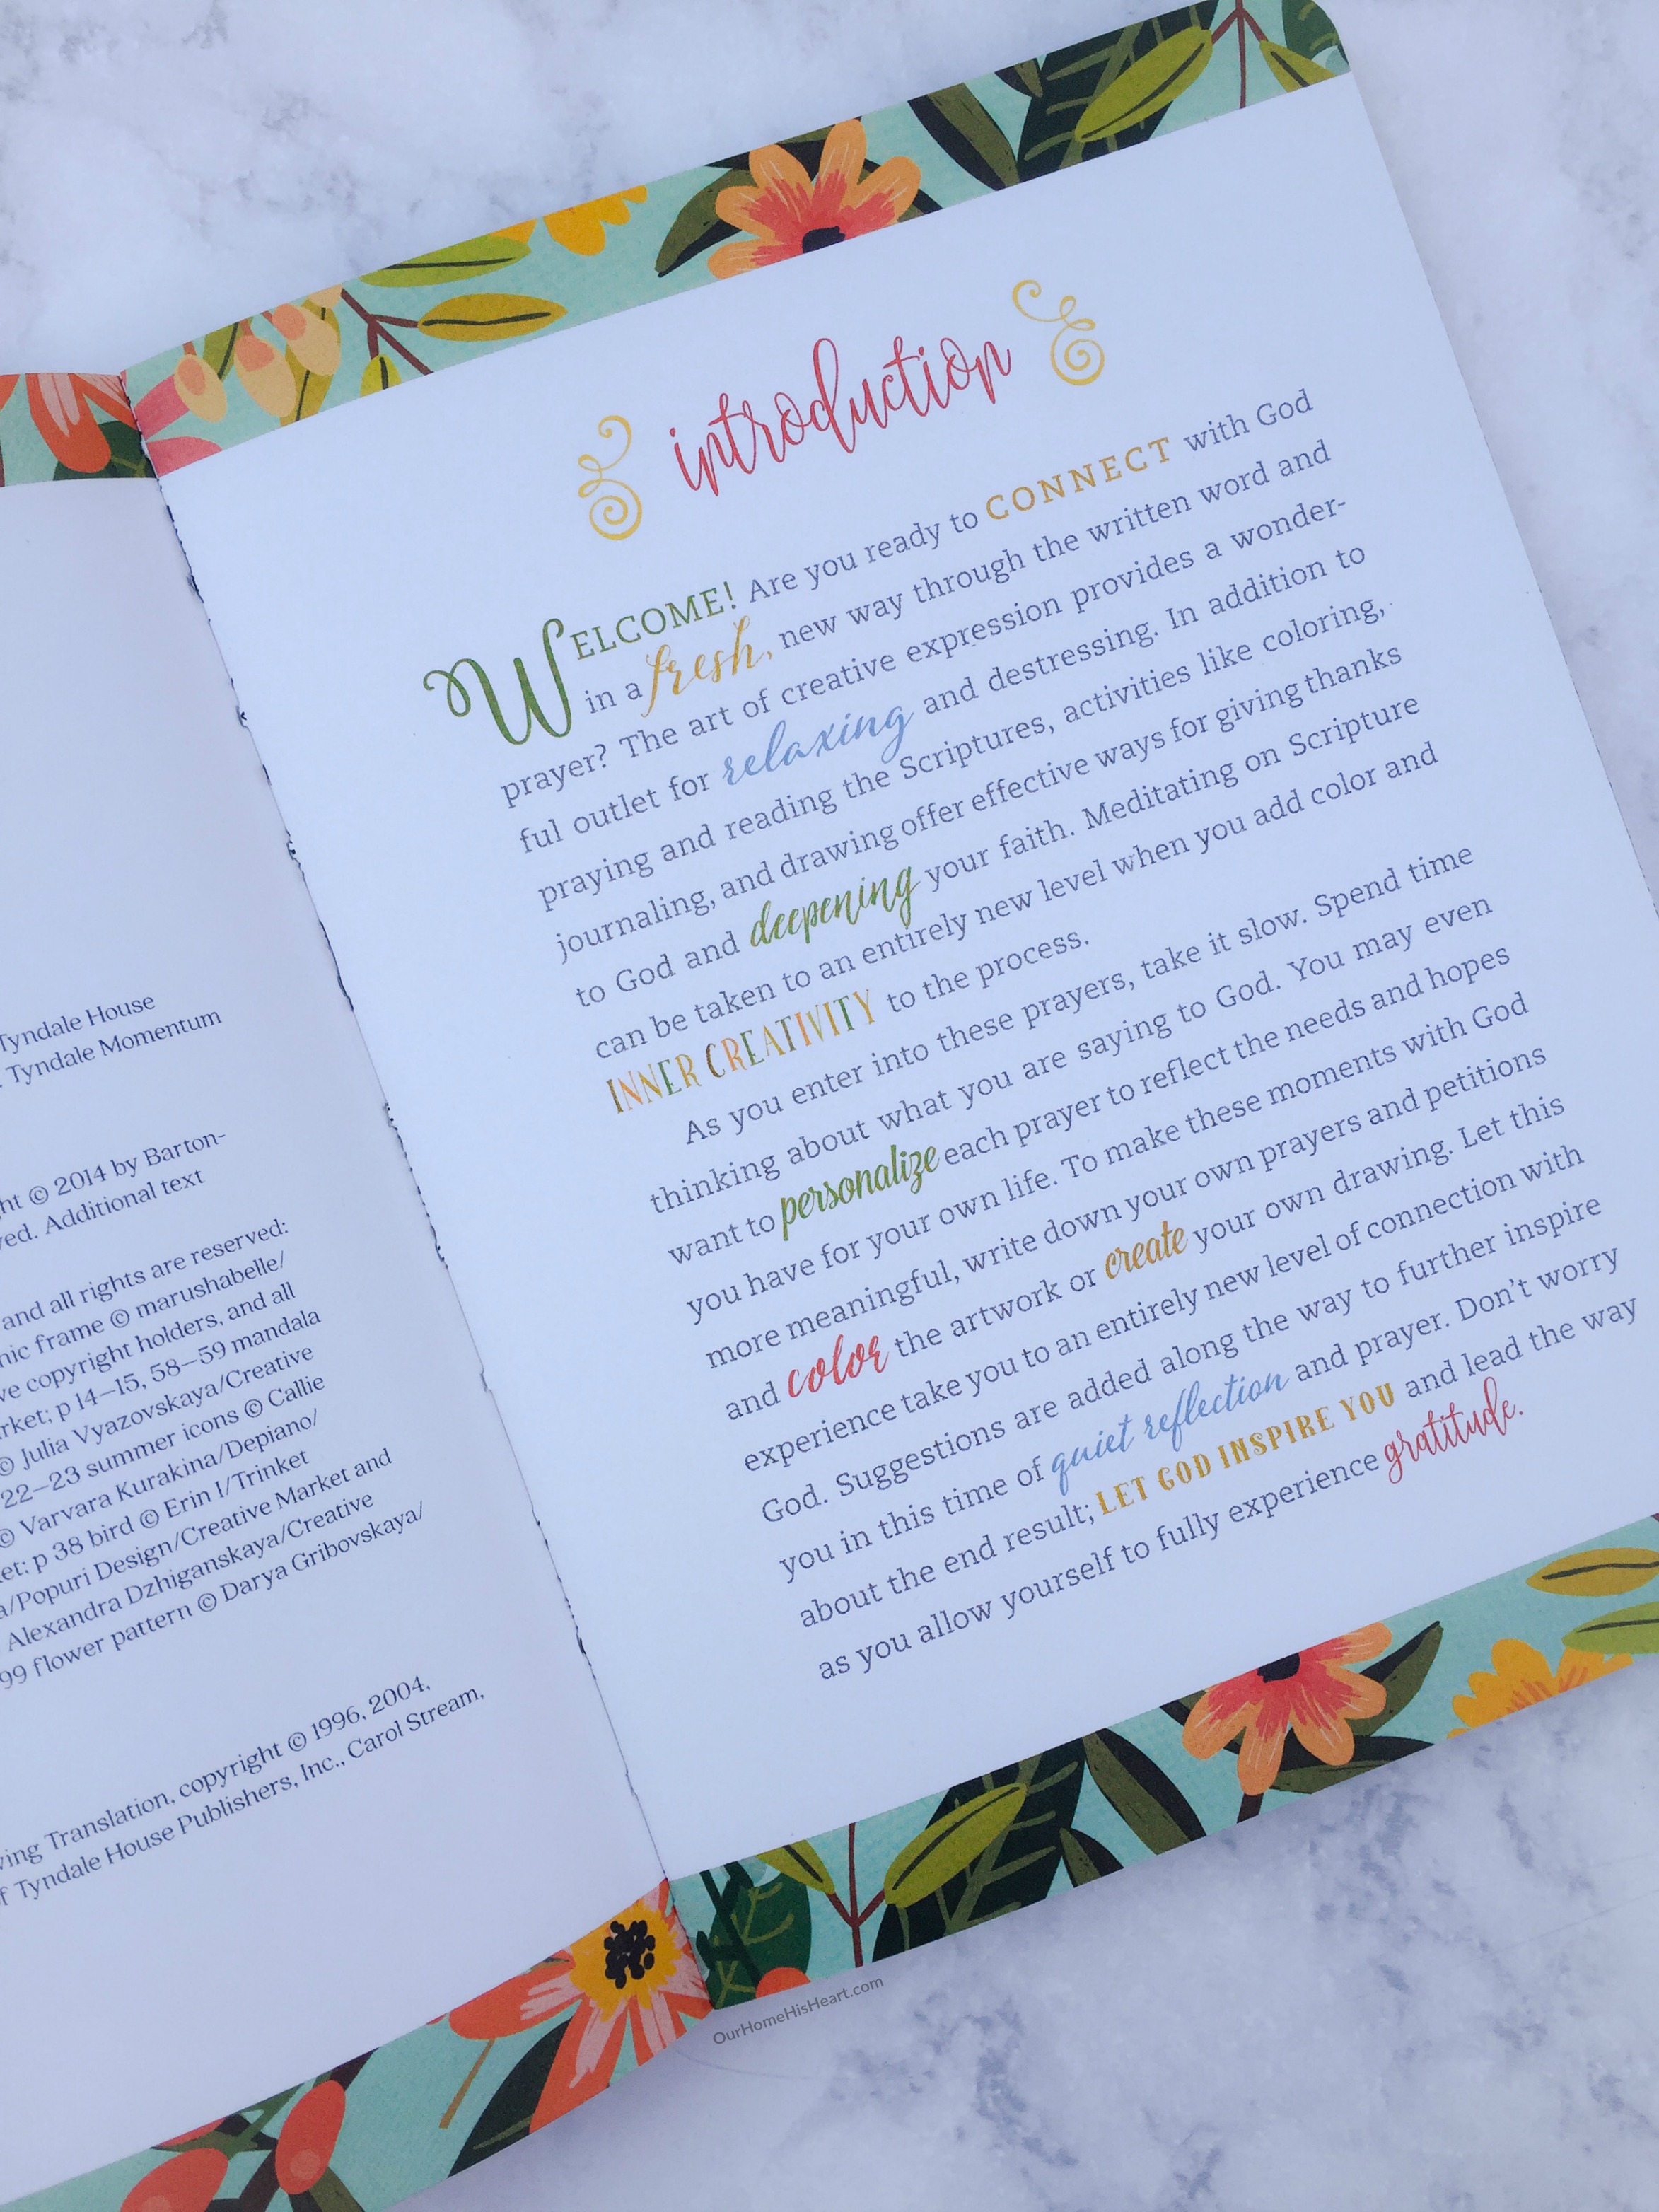 Tyndale House
Tyndale Momentum
© 2014 by Barton-
Additional text
and all rights are reserved:
frame © marushabelle/
copyright holders, and all
p 14–15, 58–59 mandala
© Julia Vyazovskaya/Creative
22–23 summer icons © Callie
© Varvara Kurakina/Depiano/
p 38 bird © Erin I/Trinket
/Popuri Design/Creative Market and
Alexandra Dzhiganskaya/Creative
99 flower pattern © Darya Gribovskaya/
Translation, copyright © 1996, 2004,
Tyndale House Publishers, Inc., Carol Stream,
introduction
WELCOME! Are you ready to CONNECT with God
in a fresh, new way through the written word and
prayer? The art of creative expression provides a wonder-
ful outlet for relaxing and destressing. In addition to
praying and reading the Scriptures, activities like coloring,
journaling, and drawing offer effective ways for giving thanks
to God and deepening your faith. Meditating on Scripture
can be taken to an entirely new level when you add color and
INNER CREATIVITY to the process.
As you enter into these prayers, take it slow. Spend time
thinking about what you are saying to God. You may even
want to personalize each prayer to reflect the needs and hopes
you have for your own life. To make these moments with God
more meaningful, write down your own prayers and petitions
and color the artwork or create your own drawing. Let this
experience take you to an entirely new level of connection with
God. Suggestions are added along the way to further inspire
you in this time of quiet reflection and prayer. Don't worry
about the end result; LET GOD INSPIRE YOU and lead the way
as you allow yourself to fully experience gratitude.
OurHomeHisHeart.com